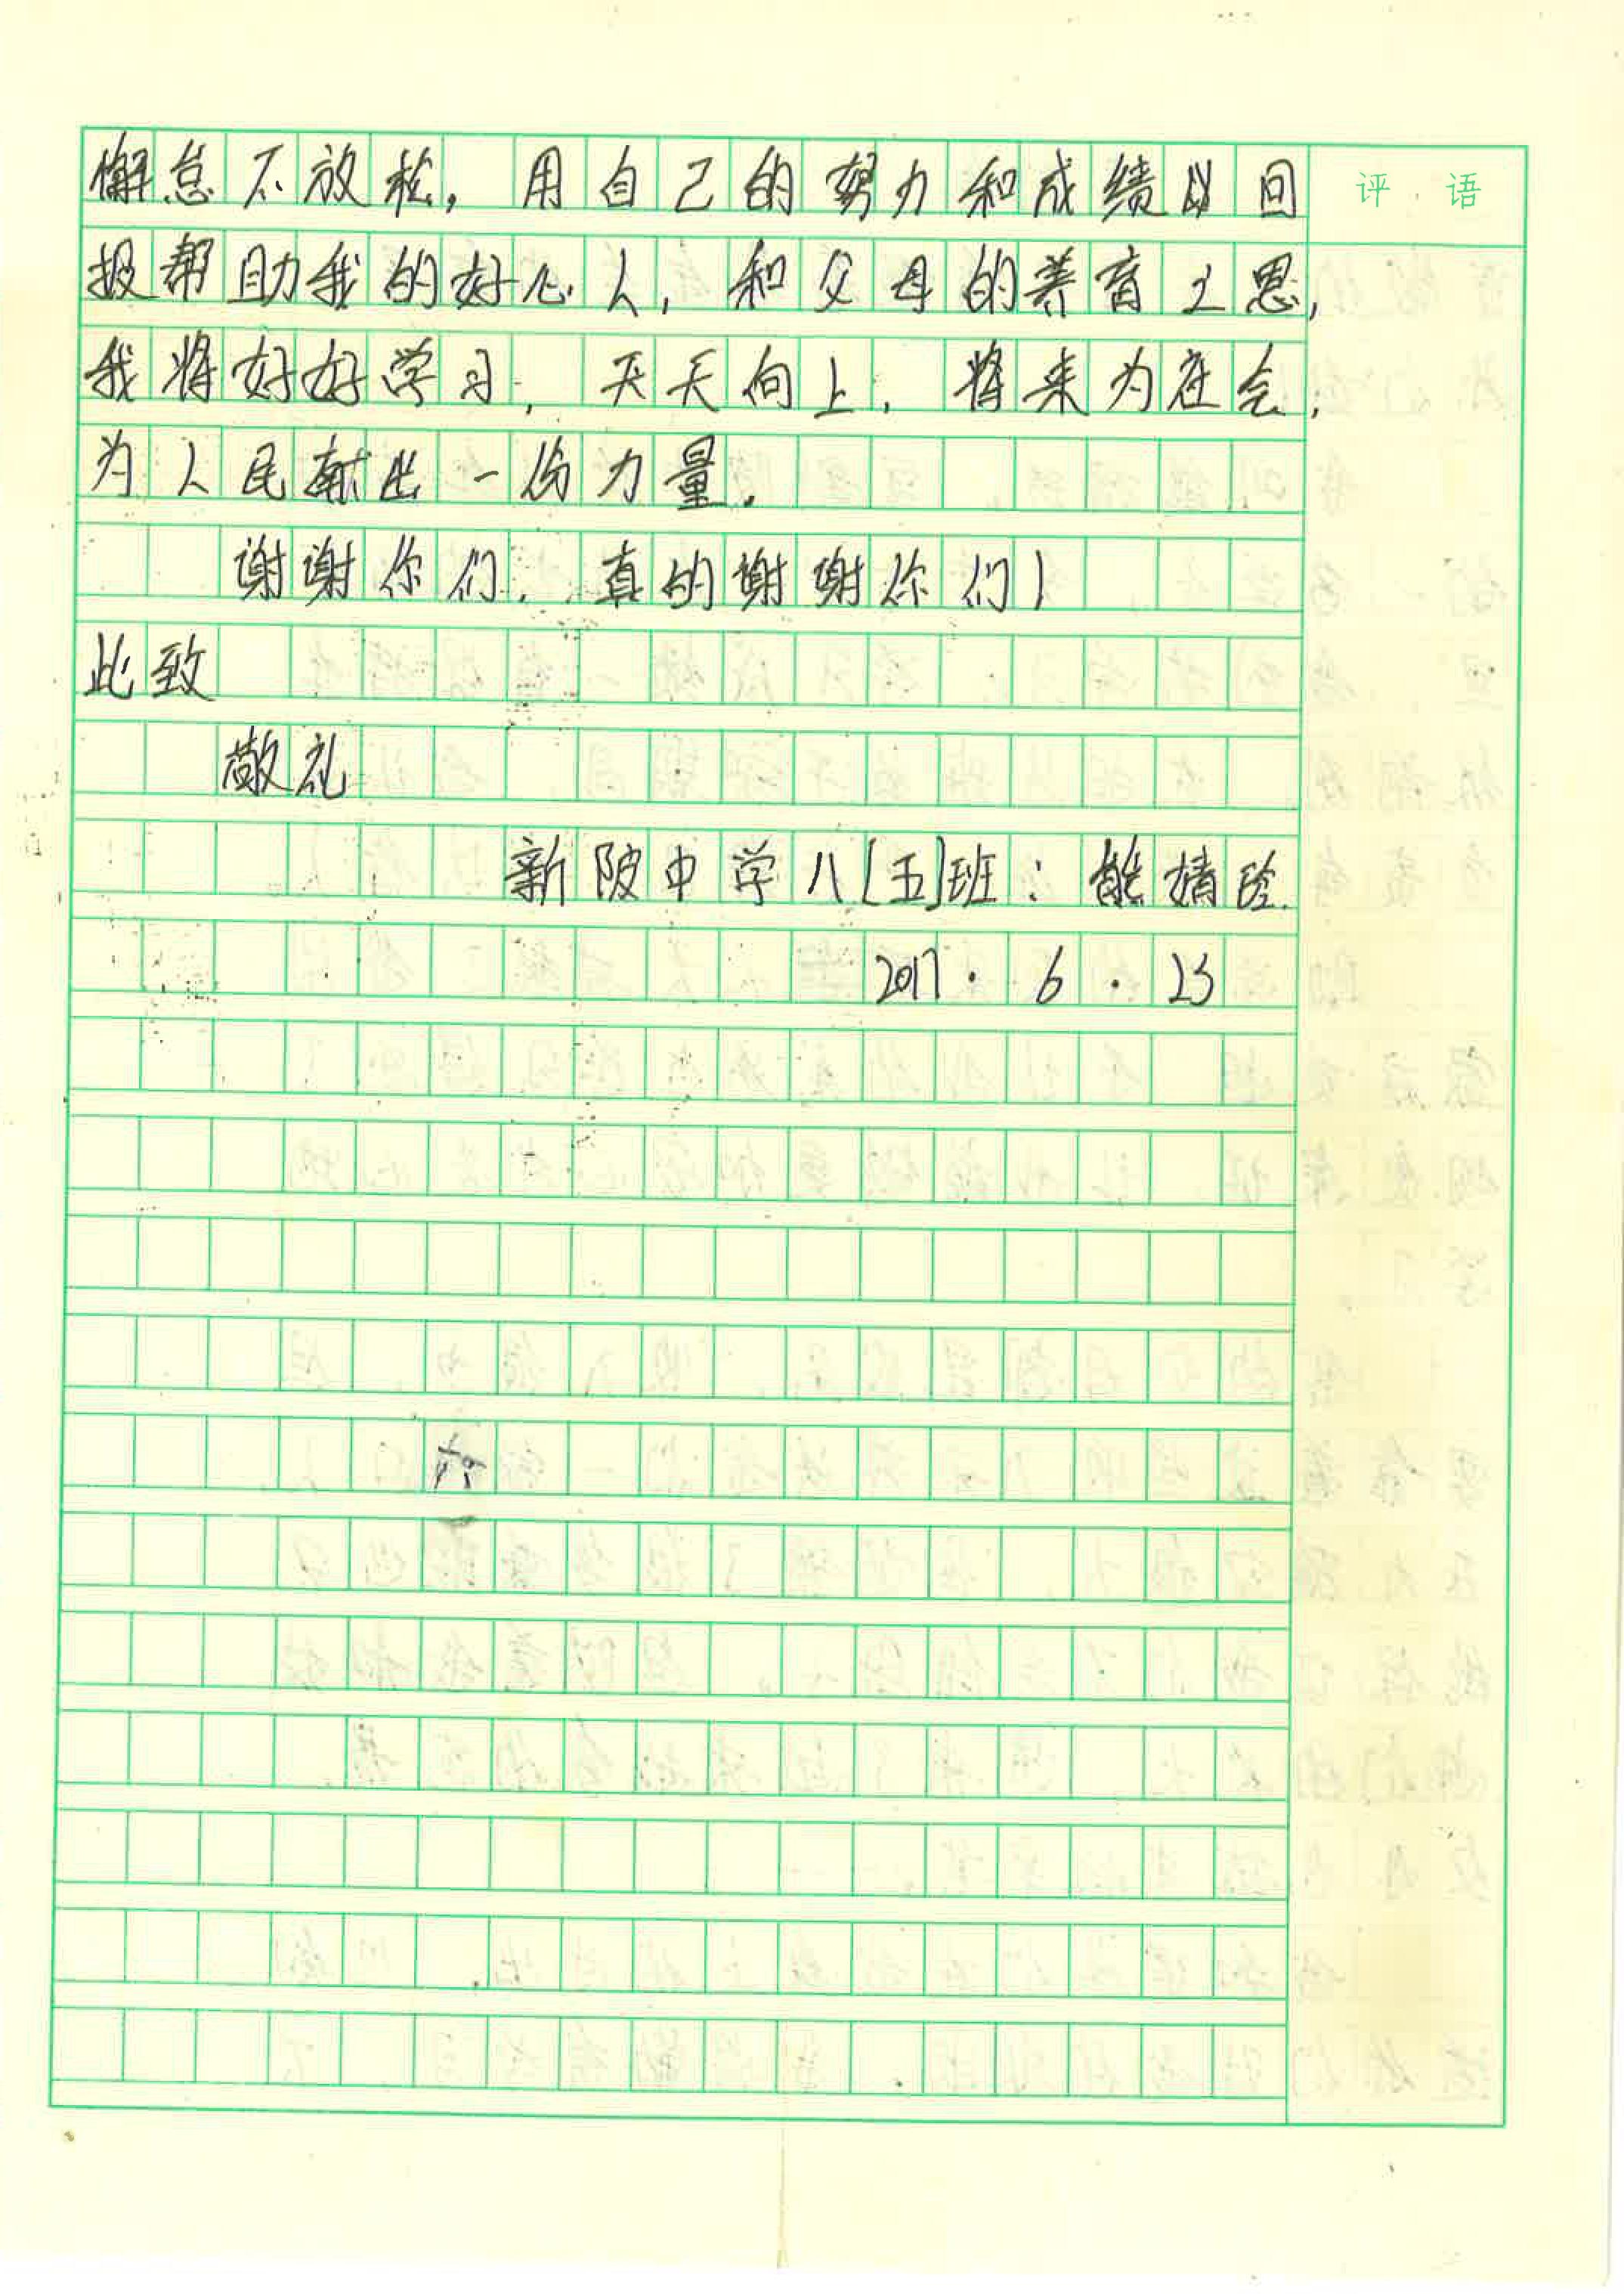 懈怠不放松，用自己的努力和成绩以回
报帮助我的好心人，和父母的养育之恩，
我将好好学习，天天向上，将来为社会，
为人民献出一份力量。
谢谢你们，真的谢谢你们！
此致
敬礼
新陂中学八[五]班：熊婧玲
2017·6·23
评语
六